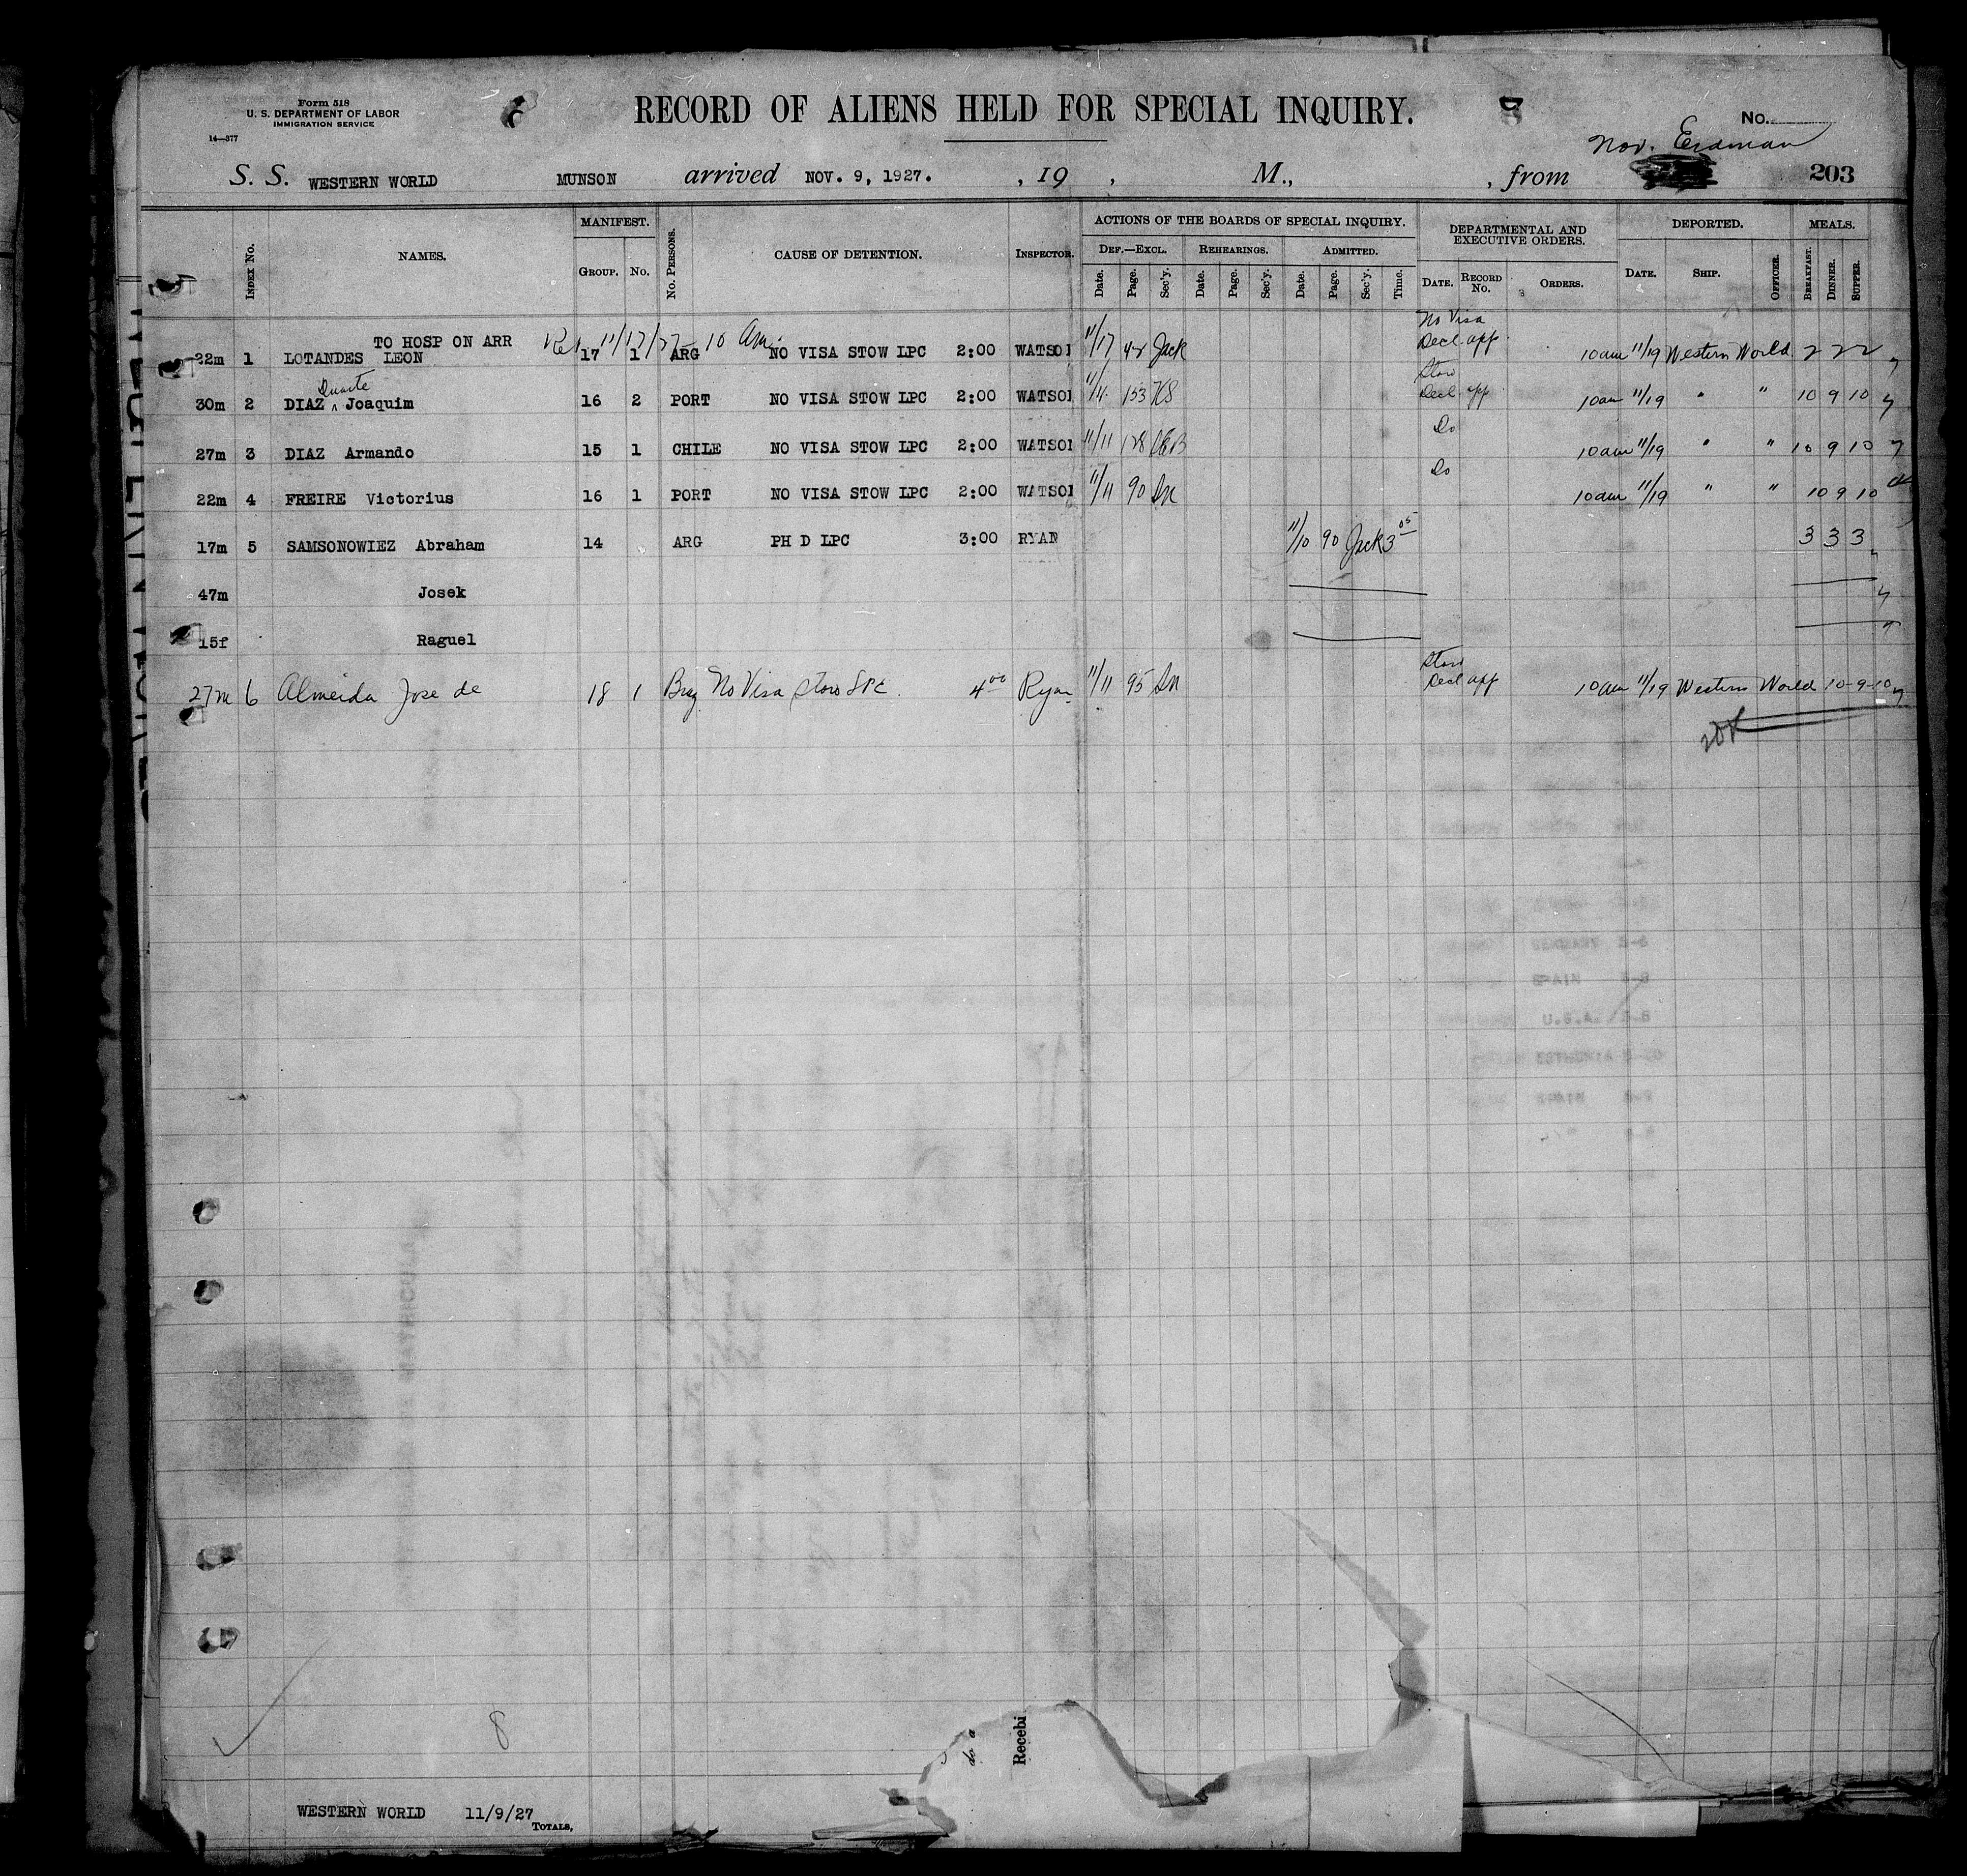 Form 518
U. S. DEPARTMENT OF LABOR
IMMIGRATION SERVICE
14—377
RECORD OF ALIENS HELD FOR SPECIAL INQUIRY.
No.
Nov. Erdman
S. S. WESTERN WORLD MUNSON arrived NOV. 9, 1927. , 19 , M., , from 203
INDEX No. NAMES. MANIFEST. GROUP. No. No. PERSONS. CAUSE OF DETENTION. INSPECTOR. ACTIONS OF THE BOARDS OF SPECIAL INQUIRY. DEF.—EXCL. Date. Page. Sec'y. REHEARINGS. Date. Page. Sec'y. ADMITTED. Date. Page. Sec'y. Time. DEPARTMENTAL AND EXECUTIVE ORDERS. DATE. RECORD No. ORDERS. DEPORTED. DATE. SHIP. OFFICER. MEALS. BREAKFAST. DINNER. SUPPER.
TO HOSP ON ARR Rel. 11/17/27 10 Am. No Visa
22m 1 LOTANDES LEON 17 1 ARG NO VISA STOW LPC 2:00 WATSON 11/17 42 Jack Decl. app. 10am 11/19 Western World 2 2 2
Duarte Stow
30m 2 DIAZ ^ Joaquim 16 2 PORT NO VISA STOW LPC 2:00 WATSON 11/11 153 Decl. app 10am 11/19 " " 10 9 10
Do
27m 3 DIAZ Armando 15 1 CHILE NO VISA STOW LPC 2:00 WATSON 11/11 128 10am 11/19 " " 10 9 10
Do
22m 4 FREIRE Victorius 16 1 PORT NO VISA STOW LPC 2:00 WATSON 11/11 90 10am 11/19 " " 10 9 10
17m 5 SAMSONOWIEZ Abraham 14 ARG PH D LPC 3:00 RYAN 11/10 90 Jack 3 05 3 3 3
47m Josek
15f Raguel
Stow
27m 6 Almeida Jose de 18 1 Braz No Visa Stow LPC. 4 00 Ryan 11/11 95 Decl app 10am 11/19 Western World 10-9-10
8
do a
Recebi
WESTERN WORLD 11/9/27
TOTALS,